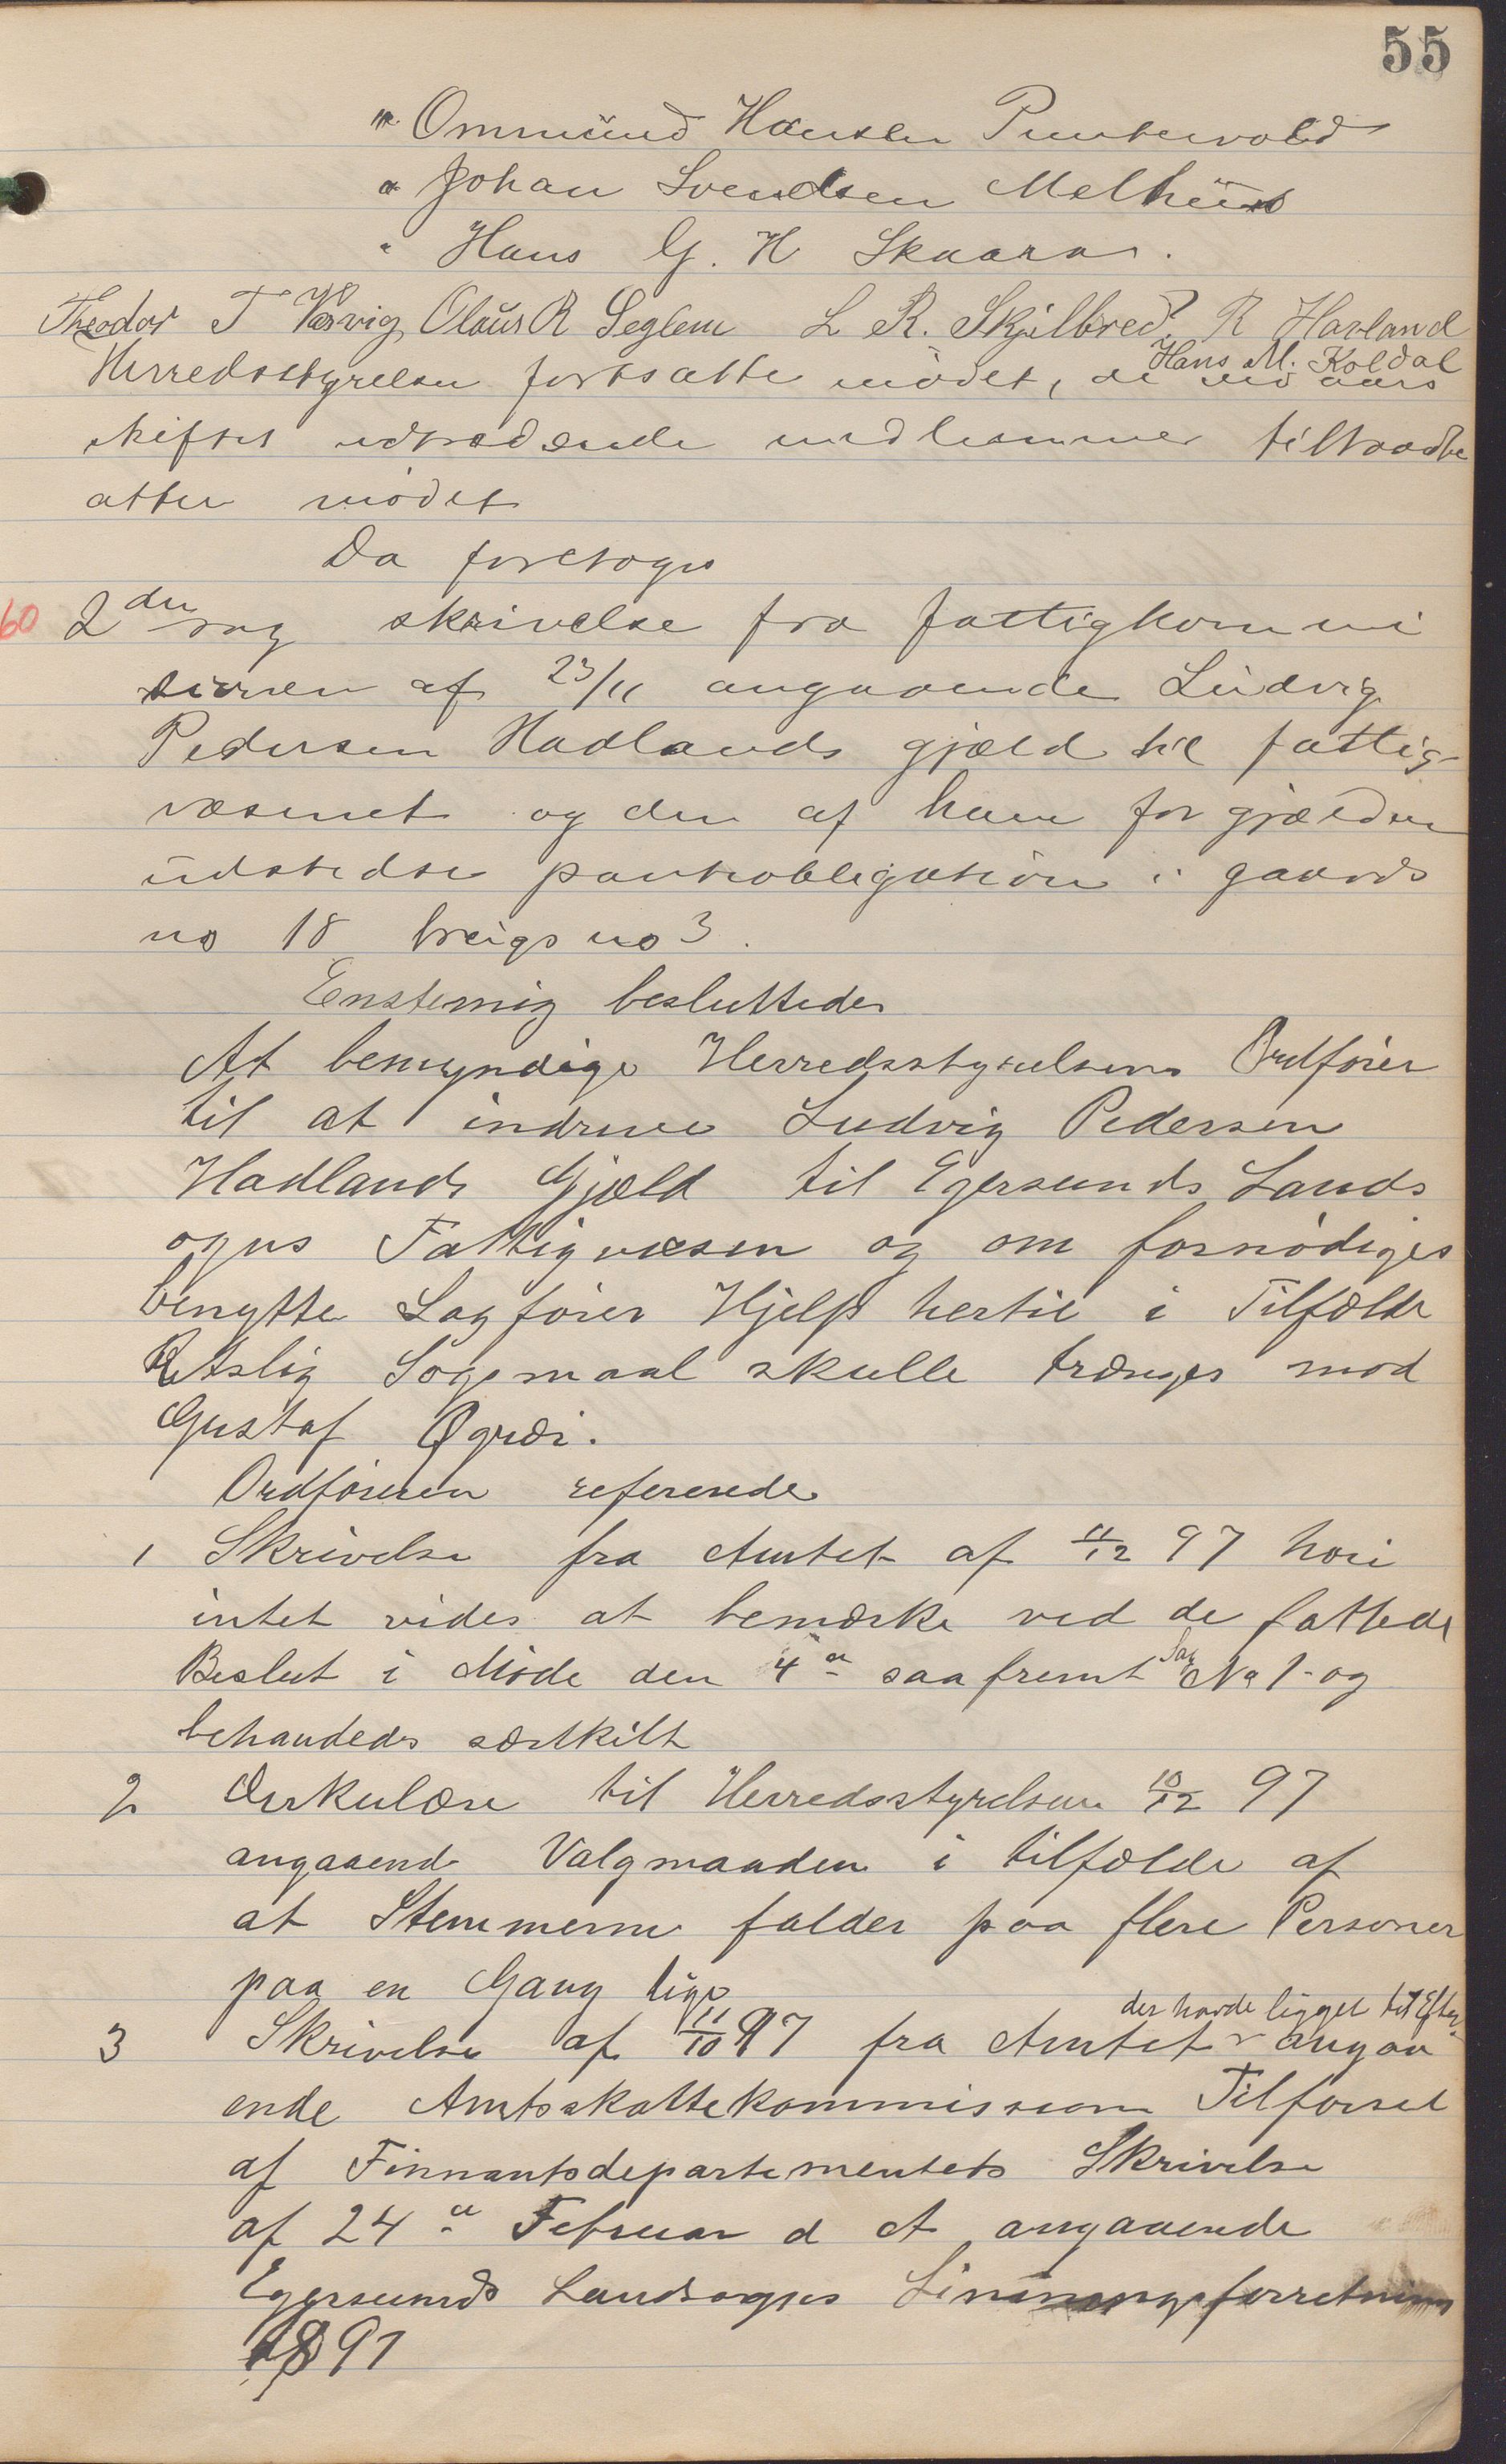 55
" Ommund Hansen Puntervold
" Johan Svendsen Melhus
" Hans G. H Skaara.
Theodor T Varvig Olaus R Seglem L R. Skjilbred R Havland
Hans M. Koldal
Herredsstyrelsen fortsatte mødet, de ved aars
skiftet udtrædende medlemmer tiltraadte
atter mødet
Da foretoges
60 2den sag skrivelse fra fattigkommi
sionen af 23/11 angaaende Ludvig
Pedersen Hadlands gjæld til fattig-
væsenet og den af ham for gjælden
udstedte pantobligation i gaards
no 18 brugs no 3.
Enstemig besluttedes
At bemyndige Herredsstyrelsens Ordfører
til at inddrive Ludvig Pedersen
Hadlands Gjæld til Egersunds Lands
ogns Fattigvæsen og om fornødiges
benytte Sagfører Hjelp hertil i Tilfælde
Retslig Søgsmaal skulle trænges mod
Gustaf Øgrei.
Ordføreren refererede
1 Skrivelse fra Amtet af 11/12 97 hvori
intet vides at bemærke ved de fattede
Beslut i Møde den 4de saafremt Sag No 1- og
behandedes særskilt
2 Cirkulære til Herredsstyrelsen 10/12 97
angaaende Valgmaaden i tilfælde af
at Stemmerne falder paa flere Personer
paa en Gang lige
3 Skrivelse af 11/10 97 fra Amtet der havde ligget til Efter- angaa
ende Amtsskattekommissionen Tilførsel
af Finnantsdepartementets Skrivelse
af 24de Februar d A angaaende
Egersunds Landsogns Ligningsforretning
1891